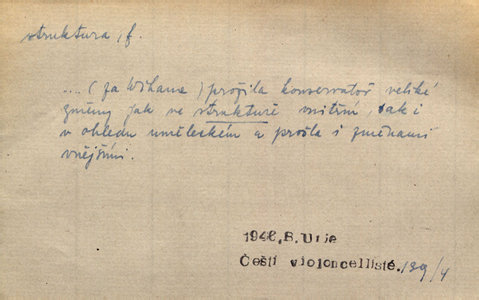 struktura, f.
.... (za Wihana) prožila konservatoř veliké
změny jak ve struktuře vnitřní, tak i
v ohledu uměleckém a prošla i změnami
vnějšími.
1946, B. Urie
Čeští violoncellisté. 139/4